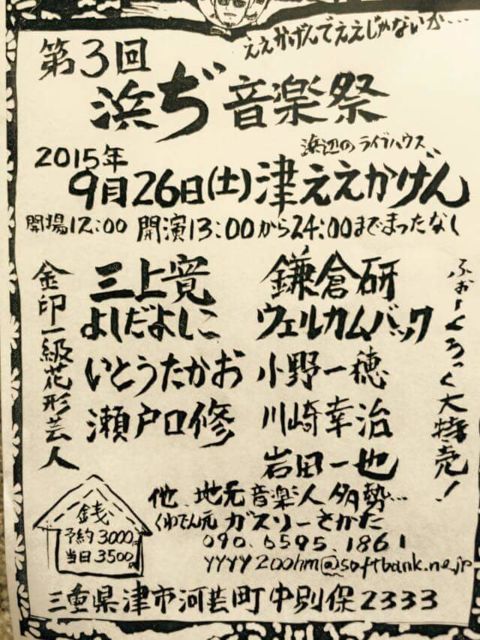 ええかげんでええじゃないか…
第3回
浜ぢ音楽祭
2015年
浜辺のライブハウス
9月26日(土)津ええかげん
開場12:00 開演13:00から24:00までまったなし
金印一級花形芸人
三上寛
よしだよしこ
いとうたかお
瀬戸口修
鎌倉研
ウェルカムバック
小野一穂
川崎幸治
岩田一也
ふぉーくろっく大特売!
銭
予約3000
当日3500
他、地元音楽人多勢…
くわでん元 ガスリーさかた
090.6595.1861
yyyy200hm@softbank.ne.jp
三重県津市河芸町中別保2333